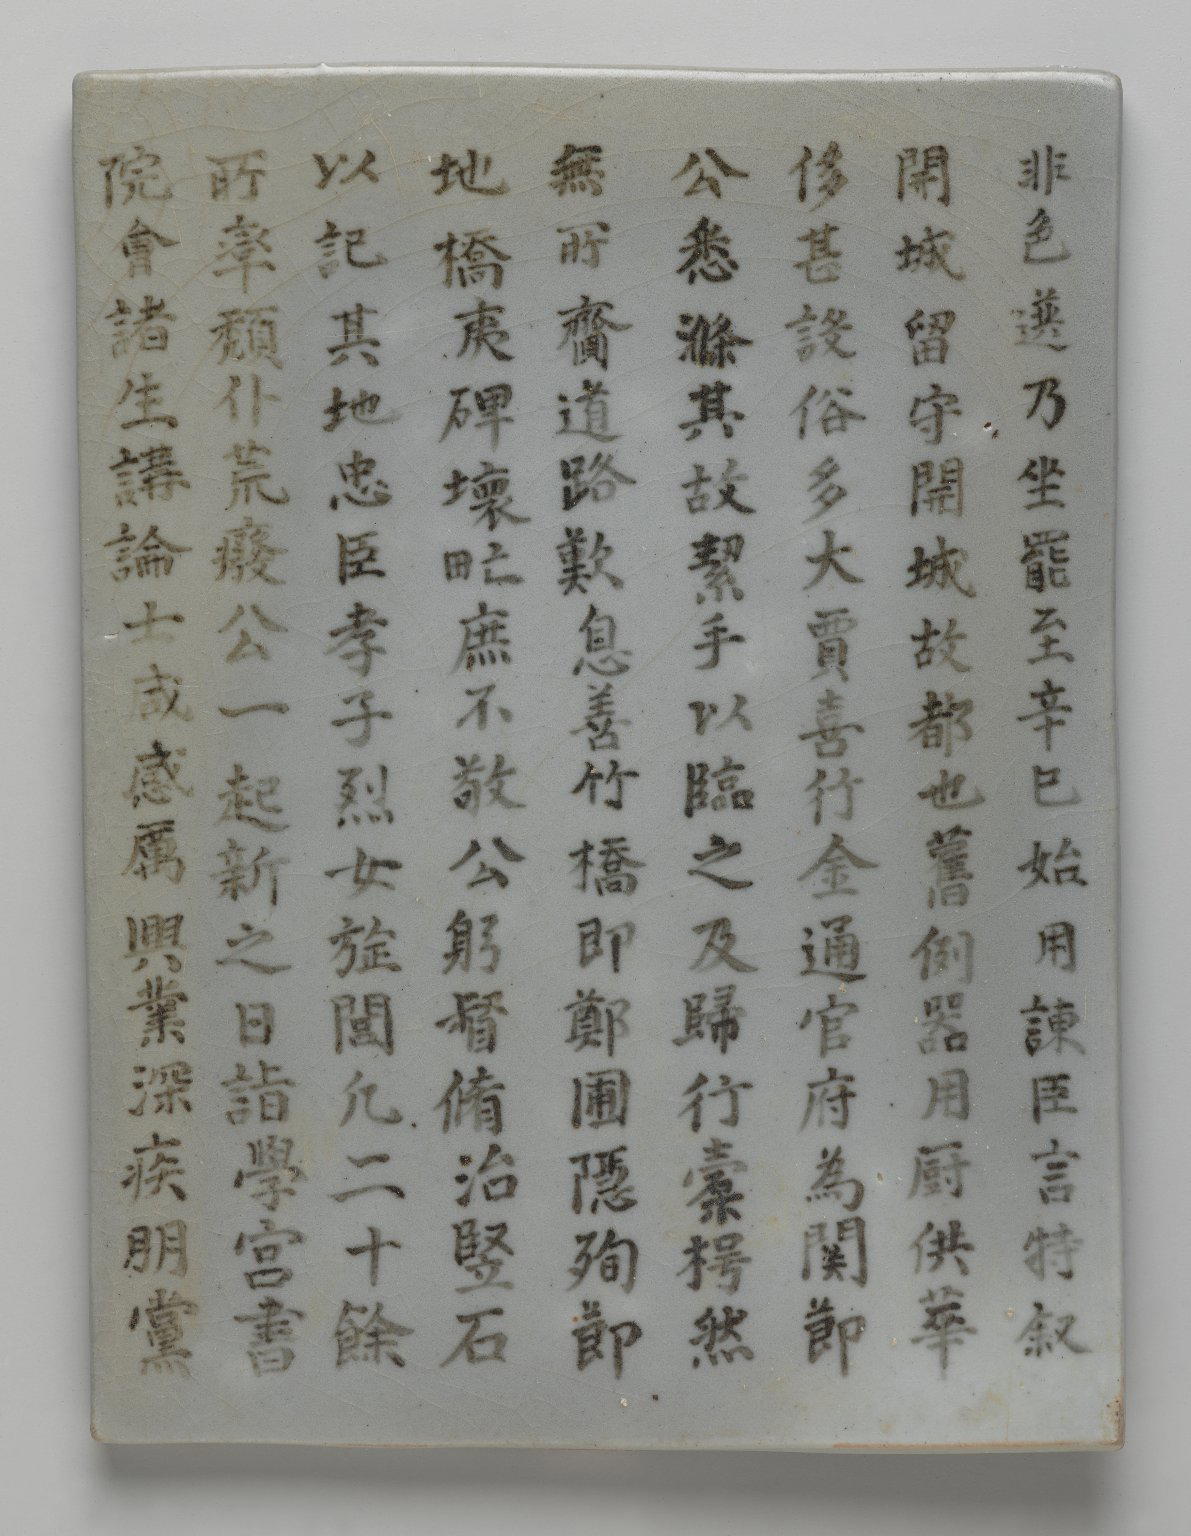 非色選乃坐罷至辛巳始用諫臣言特叙
開城留守開城故都也舊例器用厨供華
侈甚設俗多大賈喜行金通官府為関節
公悉滌其故絜手以臨之及歸行槖枵然
無所齎道路歎息善竹橋即鄭圃隠殉節
地橋夷碑壞甿庶不敬公躬督脩治竪石
以記其地忠臣孝子烈女旌閭凡二十餘
所率頽仆荒癈公一起新之日詣學宮書
院會諸生講論士咸感厲興業深疾朋黨